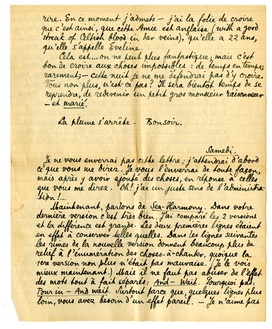 rire. En ce moment j'admets – j'ai la folie de croire
que c'est ainsi, que cette Amie est anglaise (with a good
streak of Celtish blood in her veins), qu'elle a 22 ans,
qu'elle s'appelle Eveline.
Cela est... on ne peut plus fantastique, mais c'est
bon de croire aux choses impossibles: de temps en temps;
rarement – cette nuit je ne me défendrai pas d'y croire.
Vous non plus, n'est-ce pas? Il sera bientôt temps de se
reprendre, de redevenir un petit gros monsieur raisonneur
– et marié.
La plume s'arrête. Bonsoir.
Samedi.
Je ne vous enverrai pas cette lettre; j'attendrai d'abord
ce que vous me direz. Je vous l'enverrai de toute façon,
mais après y avoir ajouté des choses, en réponse à celles
que vous me direz. Oh! j'ai un juste sens de l'administra-
tion!...
Maintenant, parlons de Sea-Harmony. Dans votre
dernière version c'est très bien. J'ai comparé les 2 versions
et la différence est grande. Les deux premières lignes étaient
en effet à conserver telles quelles. Dans les lignes suivantes
les rimes de la nouvelle version donnent beaucoup plus de
relief à l'énumération des choses-à-chanter, quoique la
1ère version non plus n'était pas mauvaise. (Je la vois
mieux maintenant.) Mais il ne faut pas abuser de l'effet
des mots tout à fait séparés: And – Wait. Bourgeois pas.
Tour in – And wait. Surtout parce que, quelques lignes plus
loin, vous avez besoin d'un effet pareil. – Je n'aime pas